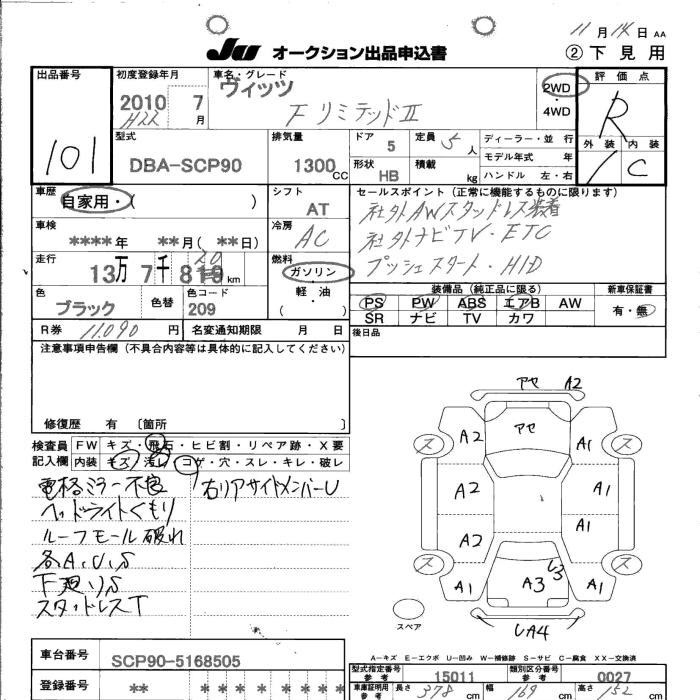 11月14日 AA
JU オークション出品申込書 ②下見用
出品番号 初度登録年月 車名・グレード 評価点
101 2010 7月 ヴィッツ 2WD・4WD R
H22 FリミテッドII
外装 内装
型式 排気量 ドア 5 定員 5人 ディーラー・並行
DBA-SCP90 1300CC 形状 HB 積載 kg モデル年式 年
ハンドル 左・右 C
車歴 自家用・( ) シフト AT セールスポイント(正常に機能するものに限ります)
社外AWスタッドレス装着
車検 ****年 **月(**日) 冷房 AC 社外ナビTV・ETC
走行 13万7千819km 20 燃料 ガソリン・軽油( ) プッシュスタート・HID
装備品(純正品に限る) 新車保証書
色 ブラック 色替 色コード 209 PS PW ABS エアB AW 有・無
SR ナビ TV カワ
R券 11,090円 名変通知期限 月 日 後日品
注意事項申告欄(不具合内容等は具体的に記入してください)
修復歴 有〔箇所 〕
検査員 FW キズ・飛石・ヒビ割・リペア跡・X要
記入欄 内装 キズ・汚レ・コゲ・穴・スレ・キレ・破レ
電格ミラー不良 右リアサイドメンバーU
ヘッドライトくもり
ルーフモール破れ
各A.U.S
下廻りS
スタッドレスT
アセ A2
A2 アセ A1
ス ス
A2 A1
A2 A1
ス ス
A1 A3 U3 A1
スペア UA4
A-キズ E-エクボ U-凹み W-補修跡 S-サビ C-腐食 XX-交換済
車台番号 SCP90-5168505 型式指定番号 参考 15011 類別区分番号 参考 0027
登録番号 ** * * * * * * * 車庫証明用 参考 長さ 378 cm 幅 169 cm 高さ 152 cm